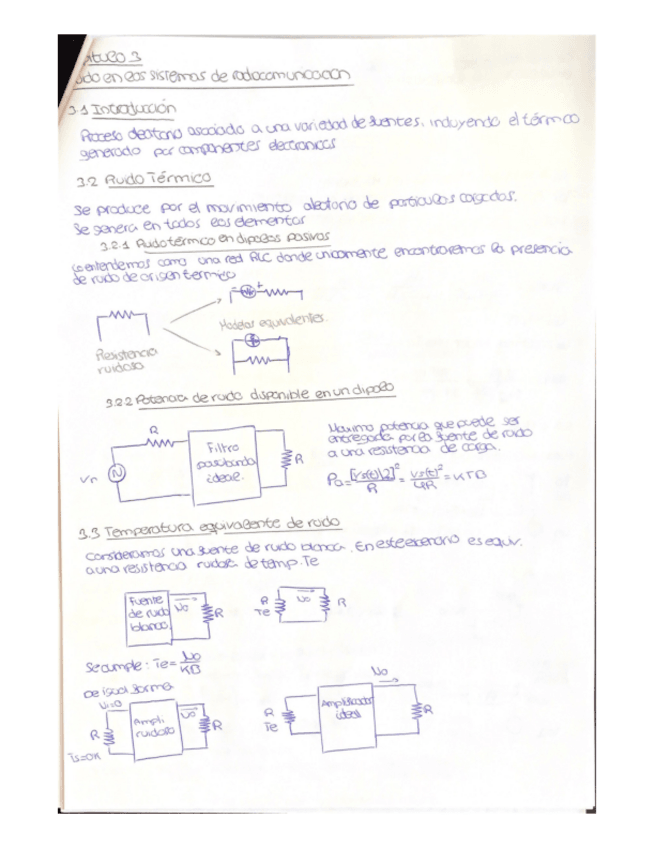 ítulo 3
ido en los sistemas de radiocomunicación
3.1 Introducción
Proceso aleatorio asociado a una variedad de fuentes, incluyendo el térmico
generado por componentes electrónicos
3.2 Ruido Térmico
Se produce por el movimiento aleatorio de partículas cargadas.
Se genera en todos los elementos
3.2.1 Ruido térmico en dipolos pasivos
Lo entendemos como una red RLC donde unicamente encontraremos la presencia
de ruido de origen termico
Modelos equivalentes.
Resistencia
ruidosa
3.2.2 Potencia de ruido disponible en un dipolo
R
Filtro
pasobanda
ideal.
R
Vn
Maxima potencia que puede ser
entregada por la fuente de ruido
a una resistencia de carga.
Pa = [Vs(t)/2]² / R = Vs(t)² / 4R = KTB
3.3 Temperatura equivalente de ruido
Consideramos una fuente de ruido blanca. En este escenario es equiv.
a una resistencia ruidosa de temp. Te
Fuente
de ruido
blanca
No
R
R
Te
No
R
Se cumple: Te = No / KB
De igual forma
Vi=0
R
Ts=0K
Ampli
ruidoso
No
R
R
Te
Amplificador
ideal
No
R